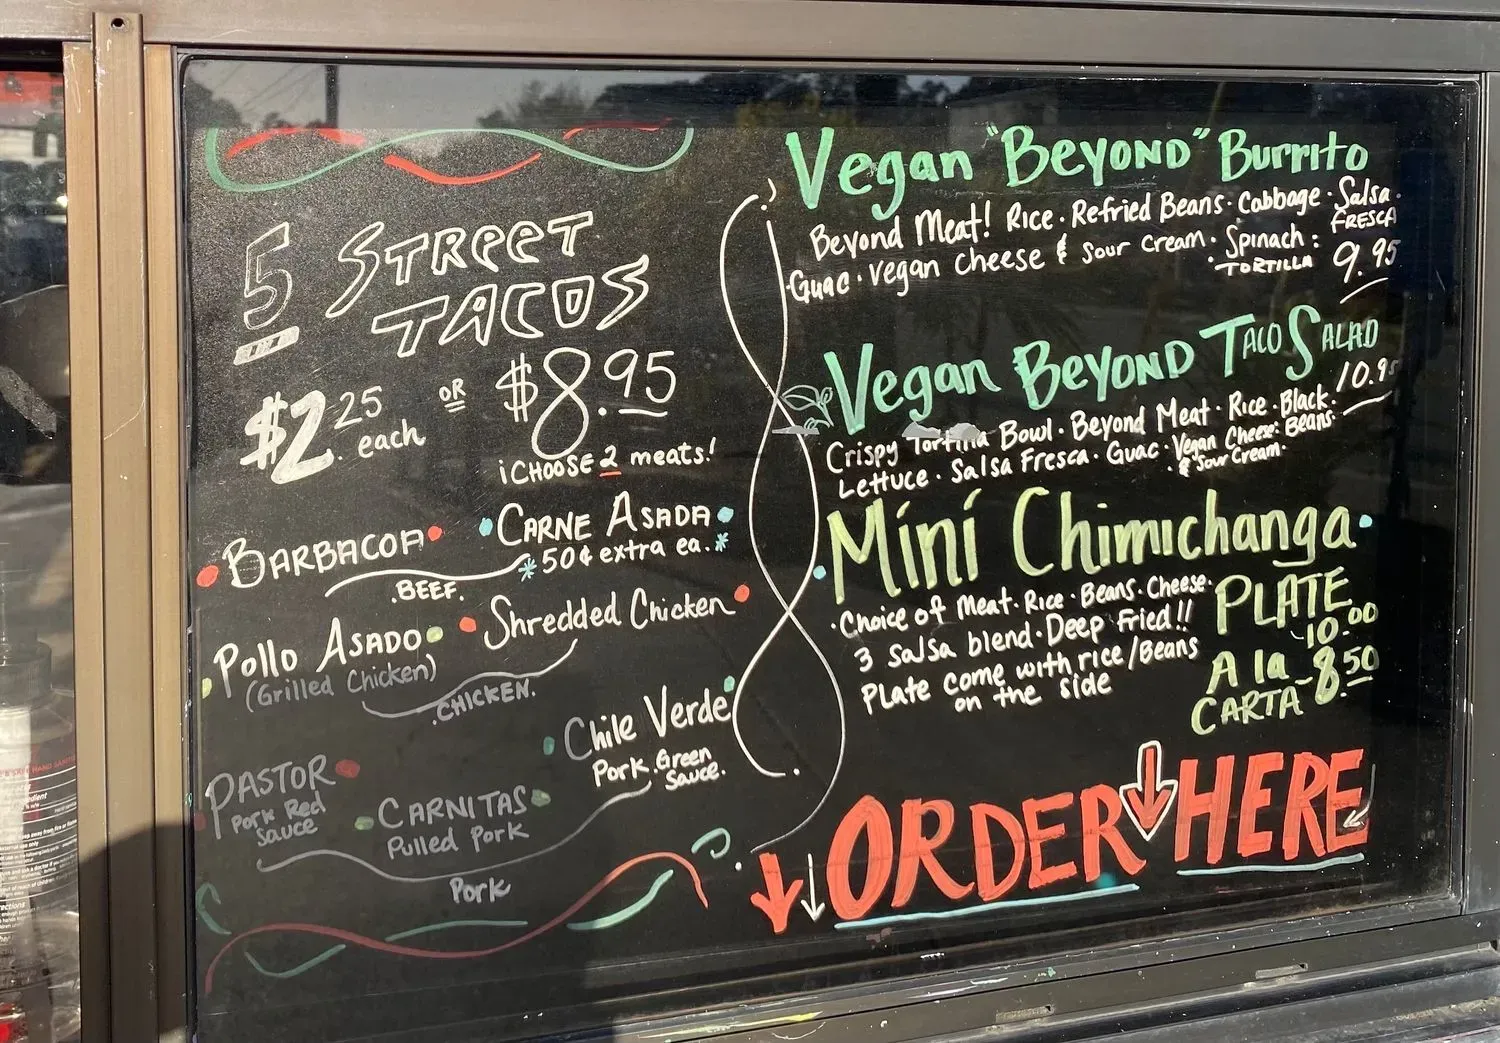 5 STREET
TACOS
$2.25 each
OR
$8.95
¡CHOOSE 2 meats!
BARBACOA
CARNE ASADA
*50¢ extra ea.*
.BEEF.
Pollo ASADO
(Grilled Chicken)
Shredded Chicken
.CHICKEN.
Chile Verde
Pork.Green
Sauce.
PASTOR
Pork Red
Sauce
CARNITAS
Pulled Pork
Pork
Vegan "BEYOND" Burrito
Beyond Meat! Rice · Refried Beans · Cabbage · Salsa ·
FRESCA
·Guac · Vegan Cheese & Sour Cream · Spinach :
TORTILLA
9.95
Vegan BEYOND TACO SALAD
10.95
Crispy Tortilla Bowl · Beyond Meat · Rice · Black ·
Beans ·
Lettuce · Salsa Fresca · Guac · Vegan Cheese:
& Sour Cream ·
Mini Chimichanga
·Choice of Meat · Rice · Beans · Cheese ·
3 salsa blend · Deep Fried!!
Plate come with rice/Beans
on the side
PLATE
-10.00
A la
CARTA -8.50
ORDER HERE